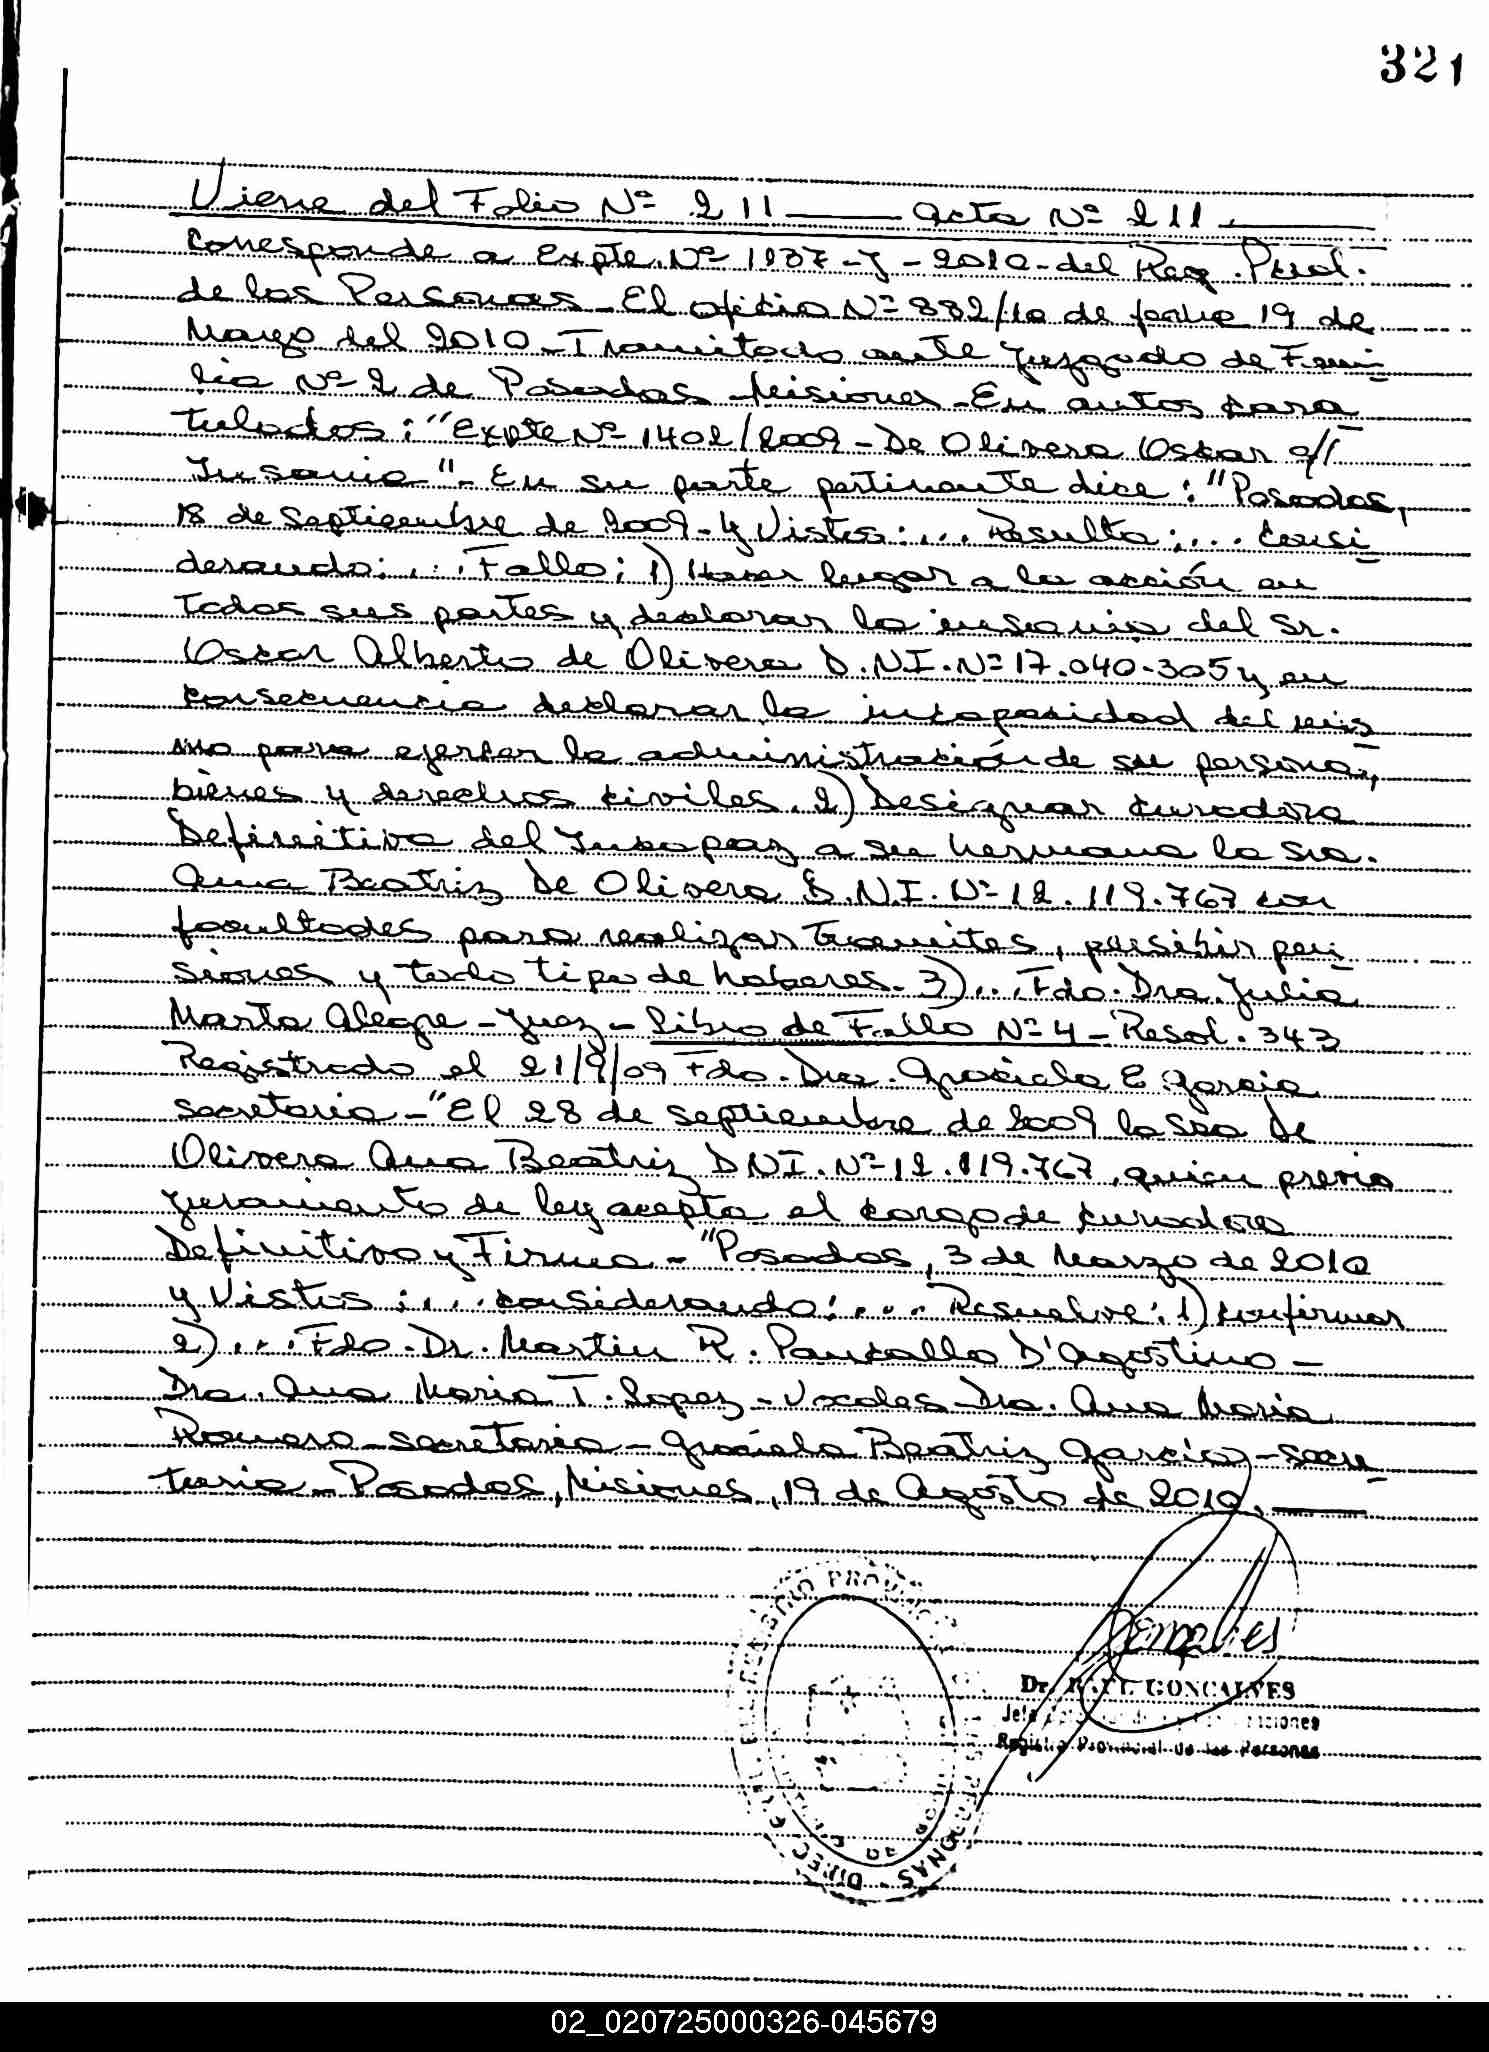 321
Viene del Folio Nº 211 ——— acta Nº 211.———
Corresponde a Expte. Nº 1937-J-2010-del Reg. Pcial.
de las Personas-El oficio Nº 882/10 de fecha 19 de
Marzo del 2010-Tramitado ante Juzgado de Fami-
lia Nº 2 de Posadas-Misiones-En autos cara
tulados: "Expte Nº 1402/2009-De Olivera Oscar s/
Insania"-En su parte pertinente dice: "Posadas,
18 de Septiembre de 2009-y Vistos:... Resulta:... Consi-
derando:... Fallo: 1) Hacer lugar a la acción en
todas sus partes y declarar la insania del Sr.
Oscar Alberto de Olivera D.NI.Nº 17.040.305 y en
consecuencia declarar la incapacidad del mis-
mo para ejercer la administración de su persona,
bienes y derechos civiles. 2) Designar curadora
Definitiva del Incapaz a su hermana la Sra.
Ana Beatriz De Olivera D.N.I. Nº 12.119.767 con
facultades para realizar tramites, percibir pen-
siones y todo tipo de haberes. 3)... Fdo. Dra. Julia
Marta Alegre-Juez-Libro de Fallo Nº 4-Resol. 343
Registrado el 21/9/09 Fdo. Dra. Graciela E Garcia
secretaria-"El 28 de septiembre de 2009 la Sra De
Olivera Ana Beatriz DNI. Nº 12.119.767, quien previo
juramento de ley acepta el cargo de curadora
Definitiva y Firma-"Posadas, 3 de Marzo de 2010
y Vistos:... considerando:... Resuelve: 1) confirmar
2)... Fdo. Dr. Martin R. Pancallo D'Agostino-
Dra. Ana Maria T. Lopez-Vocales-Dra. Ana Maria
Romero-secretaria-Graciela Beatriz Garcia-secre-
taria-Posadas, Misiones, 19 de Agosto de 2010.———
Goncalves
Dr. RAUL GONCALVES
Registro Provincial de las Personas
02_020725000326-045679